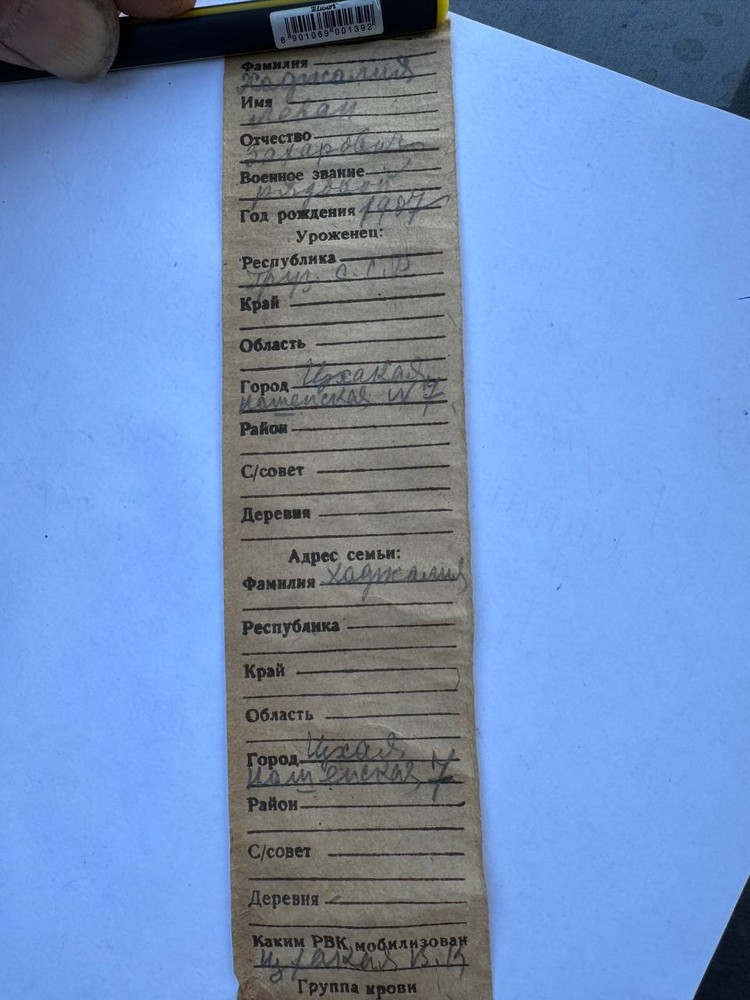 Linor
8 901069 001392
Фамилия
Хаджалия
Имя
Отчество
Захарович
Военное звание
рядовой
Год рождения 1907
Уроженец:
Республика
Груз. С.С.Р
Край
Область
Город Цхакая
№ 7
Район
С/совет
Деревня
Адрес семьи:
Фамилия Хаджалия
Республика
Край
Область
Город Цхая
7
Район
С/совет
Деревня
Каким РВК мобилизован
Цхакая В.К
Группа крови